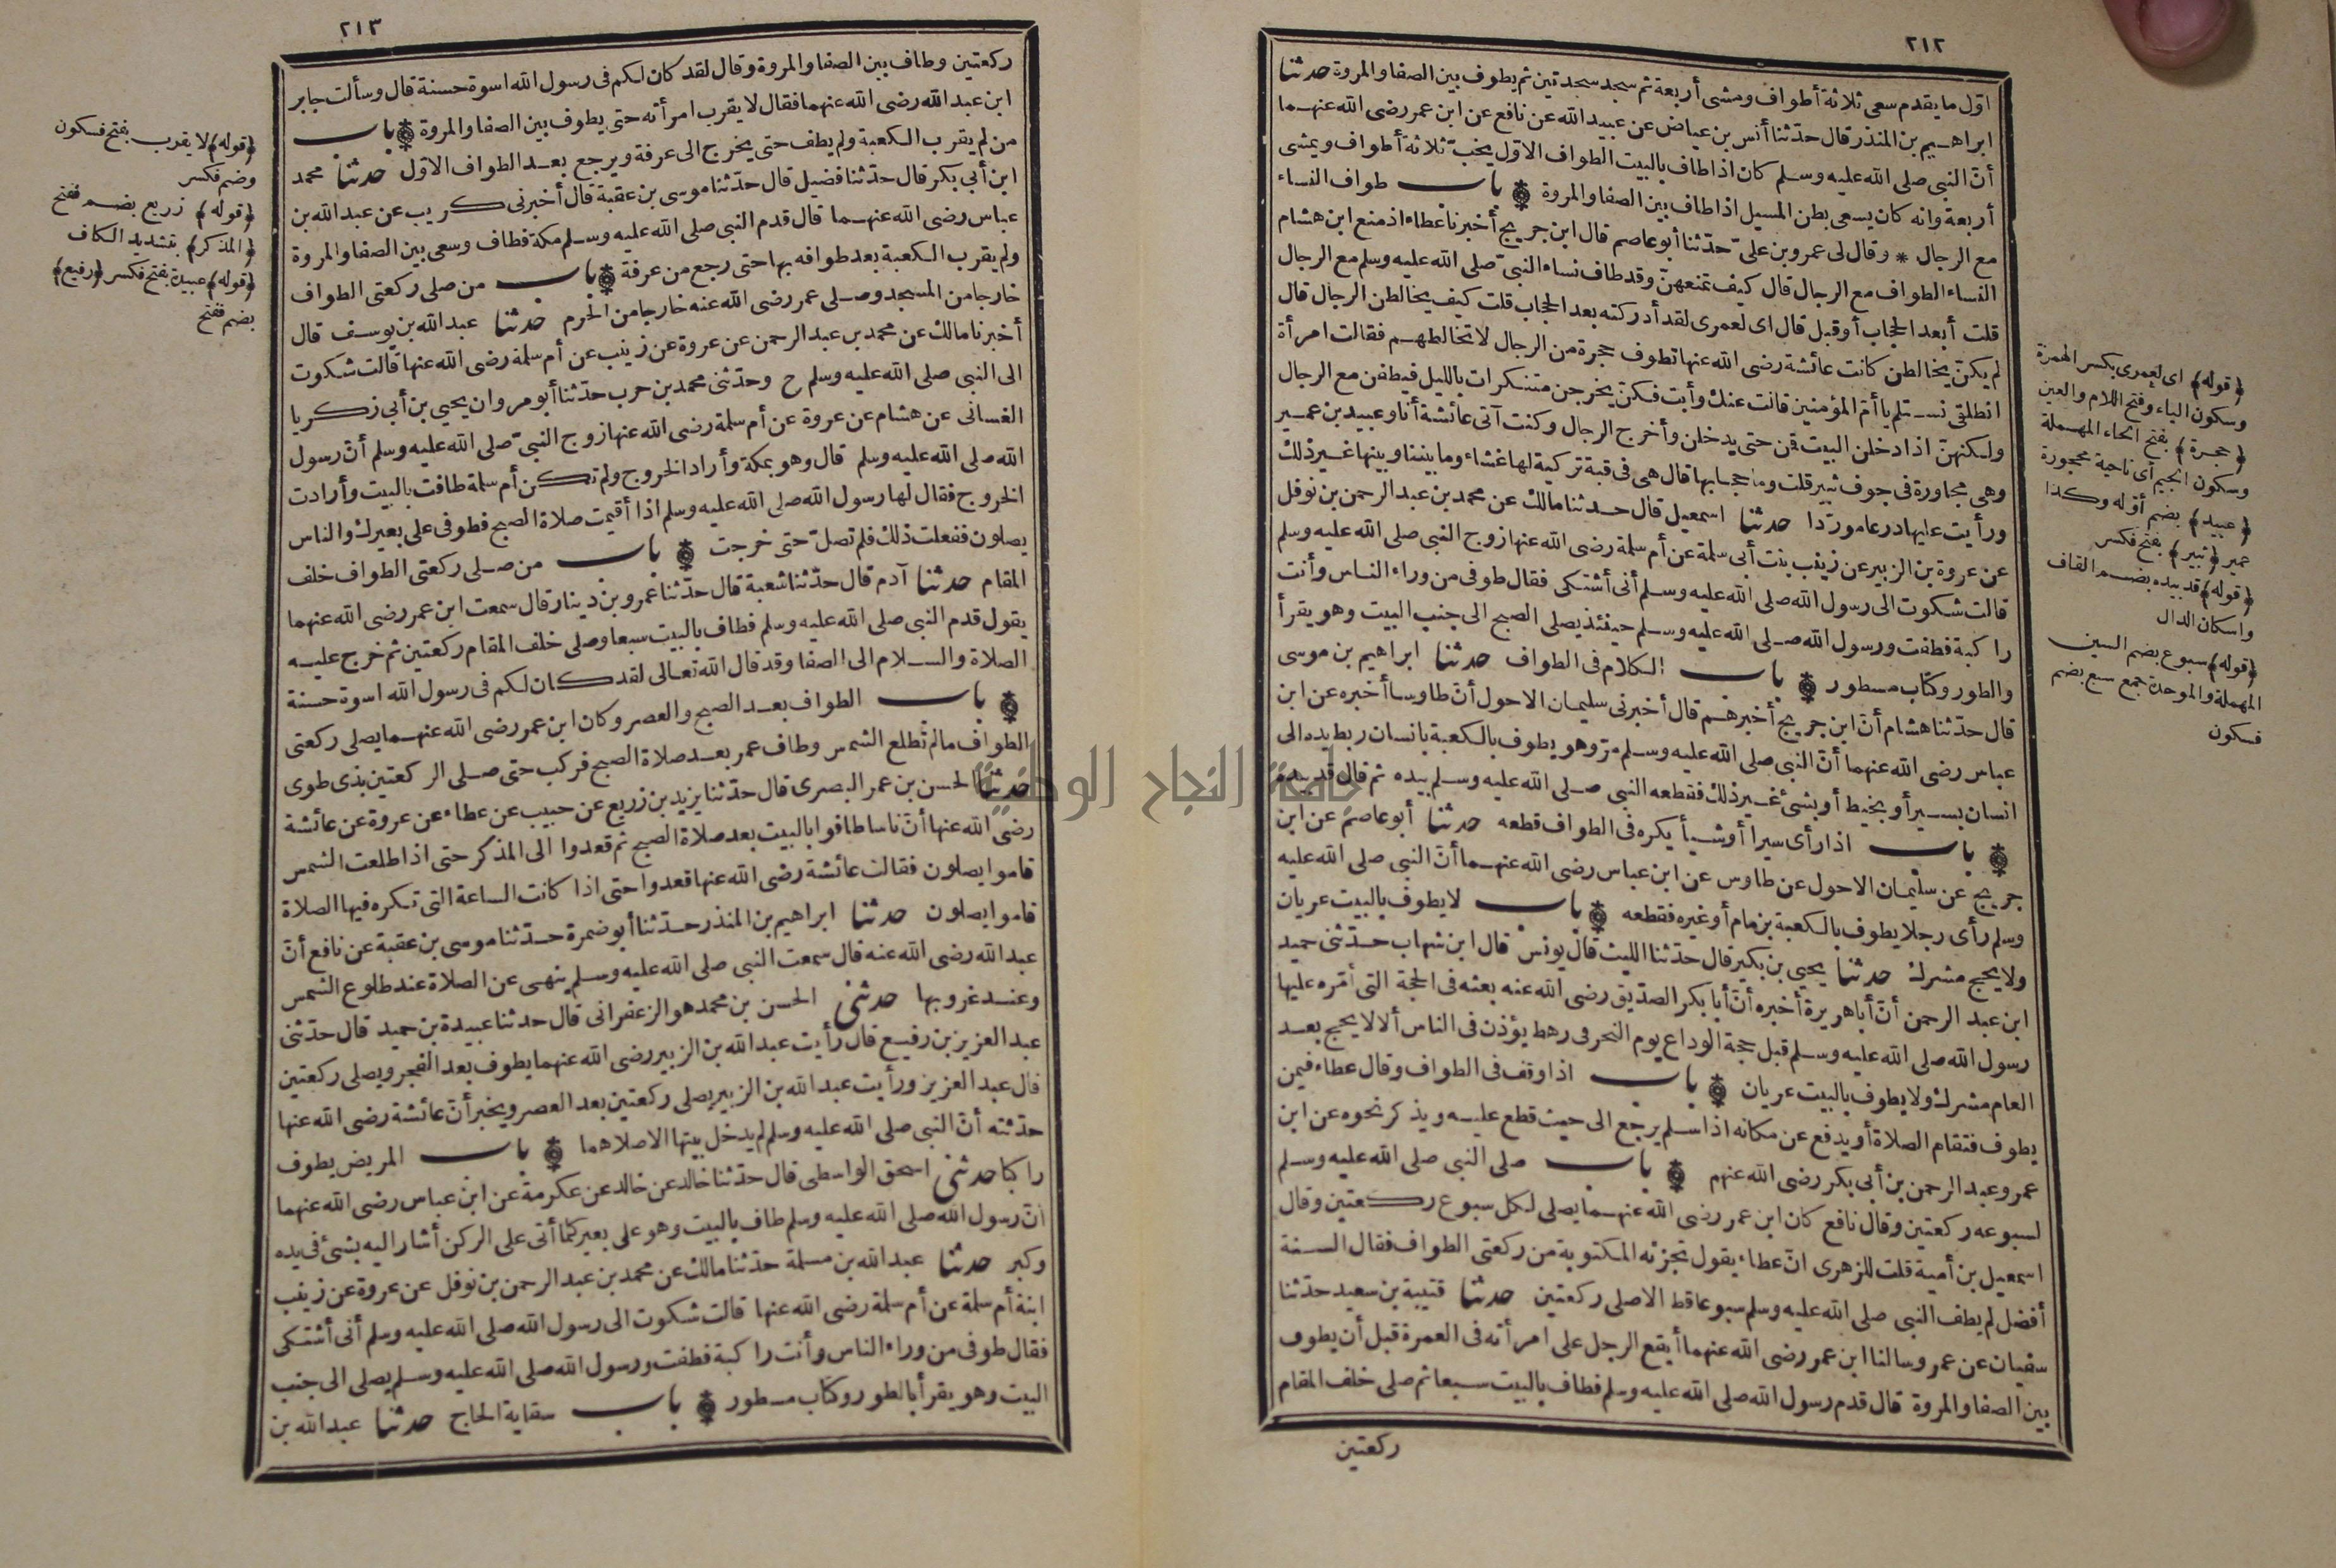 ٢١٢
اوّل ما يقدم سعى ثلاثة أطواف ومشى أربعة ثم سجد سجدتين ثم يطوف بين الصفا والمروة حدثنا
ابراهيم بن المنذر قال حدّثنا أنس بن عياض عن عبيد الله عن نافع عن ابن عمر رضى الله عنهما
أنّ النبى صلى الله عليه وسلم كان اذا طاف بالبيت الطواف الاوّل يخبّ ثلاثة أطواف ويمشى
أربعة وانه كان يسعى بطن المسيل اذا طاف بين الصفا والمروة باب طواف النساء
مع الرجال * وقال لى عمرو بن علىّ حدّثنا أبو عاصم قال ابن جريج أخبرنا عطاء اذ منع ابن هشام
النساء الطواف مع الرجال قال كيف تمنعهنّ وقد طاف نساء النبىّ صلى الله عليه وسلم مع الرجال
قلت أبعد الحجاب أو قبل قال اى لعمرى لقد أدركته بعد الحجاب قلت كيف يخالطن الرجال قال
لم يكنّ يخالطن كانت عائشة رضى الله عنها تطوف حجرة من الرجال لا تخالطهم فقالت امرأة
انطلقى نستلم يا أمّ المؤمنين قالت عنك وأبت فكنّ يخرجن متنكرات بالليل فيطفن مع الرجال
ولكنهنّ اذا دخلن البيت قن حتى يدخلن وأخرج الرجال وكنت آتى عائشة أنا وعبيد بن عمير
وهى مجاورة فى جوف ثبير قلت وما حجابها قال هى فى قبة تركية لها غشاء وما بيننا وبينها غير ذلك
ورأيت عليها درعا مورّدا حدثنا اسمعيل قال حدثنا مالك عن محمد بن عبد الرحمن بن نوفل
عن عروة بن الزبير عن زينب بنت أبى سلمة عن أم سلمة رضى الله عنها زوج النبى صلى الله عليه وسلم
قالت شكوت الى رسول الله صلى الله عليه وسلم أنى أشتكى فقال طوفى من وراء الناس وأنت
راكبة فطفت ورسول الله صلى الله عليه وسلم حينئذ يصلى الصبح الى جنب البيت وهو يقرأ
والطور وكتاب مسطور باب الكلام فى الطواف حدثنا ابراهيم بن موسى
قال حدّثنا هشام أنّ ابن جريج أخبرهم قال أخبرنى سليمان الاحول أنّ طاوسا أخبره عن ابن
عباس رضى الله عنهما أنّ النبى صلى الله عليه وسلم مرّ وهو يطوف بالكعبة بانسان ربط يده الى
انسان بسير أو بخيط أو بشئ غير ذلك فقطعه النبى صلى الله عليه وسلم بيده ثم قال قد بيده
باب اذا رأى سيرا أو شيأ يكره فى الطواف قطعه حدثنا أبو عاصم عن ابن
جريج عن سليمان الاحول عن طاوس عن ابن عباس رضى الله عنهما أنّ النبى صلى الله عليه
وسلم رأى رجلا يطوف بالكعبة بزمام أو غيره فقطعه باب لا يطوف بالبيت عريان
ولا يحج مشرك حدثنا يحيى بن بكير قال حدّثنا الليث قال يونس قال ابن شهاب حدّثنى حميد
ابن عبد الرحمن أنّ أبا هريرة أخبره أنّ أبا بكر الصدّيق رضى الله عنه بعثه فى الحجة التى أمّره عليها
رسول الله صلى الله عليه وسلم قبل حجة الوداع يوم النحر فى رهط يؤذن فى الناس ألا لا يحج بعد
العام مشرك ولا يطوف بالبيت عريان باب اذا وقف فى الطواف وقال عطاء فيمن
يطوف فتقام الصلاة أو يدفع عن مكانه اذا سلم يرجع الى حيث قطع عليه ويذكر نحوه عن ابن
عمر وعبد الرحمن بن أبى بكر رضى الله عنهم باب صلى النبى صلى الله عليه وسلم
لسبوعه ركعتين وقال نافع كان ابن عمر رضى الله عنهما يصلى لكل سبوع ركعتين وقال
اسمعيل بن أمية قلت للزهرى انّ عطاء يقول تجزئه المكتوبة من ركعتى الطواف فقال السنة
أفضل لم يطف النبى صلى الله عليه وسلم سبوعا قط الا صلى ركعتين حدثنا قتيبة بن سعيد حدّثنا
سفيان عن عمرو سالنا ابن عمر رضى الله عنهما أيقع الرجل على امرأته فى العمرة قبل أن يطوف
بين الصفا والمروة قال قدم رسول الله صلى الله عليه وسلم فطاف بالبيت سبعا ثم صلى خلف المقام
ركعتين
﴿قوله﴾ اى لعمرى بكسر الهمزة
وسكون الياء وفتح اللام والعين
﴿حجرة﴾ بفتح الحاء المهملة
وسكون الجيم أى ناحية محجورة
﴿عبيد﴾ بضم أوّله وكذا
عمير ﴿ثبير﴾ بفتح فكسر
﴿قوله﴾ قد بيده بضم القاف
واسكان الدال
﴿قوله﴾ سبوع بضم السين
المهملة والموحدة جمع سبع بضم
فسكون
٢١٣
ركعتين وطاف بين الصفا والمروة وقال لقد كان لكم فى رسول الله اسوة حسنة قال وسألت جابر
ابن عبد الله رضى الله عنهما فقال لا يقرب امرأته حتى يطوف بين الصفا والمروة باب
من لم يقرب الكعبة ولم يطف حتى يخرج الى عرفة ويرجع بعد الطواف الاوّل حدثنا محمد
ابن أبى بكر قال حدّثنا فضيل قال حدّثنا موسى بن عقبة قال أخبرنى كريب عن عبد الله بن
عباس رضى الله عنهما قال قدم النبى صلى الله عليه وسلم مكة فطاف وسعى بين الصفا والمروة
ولم يقرب الكعبة بعد طوافه بها حتى رجع من عرفة باب من صلى ركعتى الطواف
خارجا من المسجد وصلى عمر رضى الله عنه خارجا من الحرم حدثنا عبد الله بن يوسف قال
أخبرنا مالك عن محمد بن عبد الرحمن عن عروة عن زينب عن أم سلمة رضى الله عنها قالت شكوت
الى النبى صلى الله عليه وسلم ح وحدّثنى محمد بن حرب حدّثنا أبو مروان يحيى بن أبى زكريا
الغسانى عن هشام عن عروة عن أم سلمة رضى الله عنها زوج النبىّ صلى الله عليه وسلم أنّ رسول
الله صلى الله عليه وسلم قال وهو بمكة وأراد الخروج ولم تكن أم سلمة طافت بالبيت وأرادت
الخروج فقال لها رسول الله صلى الله عليه وسلم اذا أقيمت صلاة الصبح فطوفى على بعيرك والناس
يصلون ففعلت ذلك فلم تصلّ حتى خرجت باب من صلى ركعتى الطواف خلف
المقام حدثنا آدم قال حدّثنا شعبة قال حدّثنا عمرو بن دينار قال سمعت ابن عمر رضى الله عنهما
يقول قدم النبى صلى الله عليه وسلم فطاف بالبيت سبعا وصلى خلف المقام ركعتين ثم خرج عليه
الصلاة والسلام الى الصفا وقد قال الله تعالى لقد كان لكم فى رسول الله اسوة حسنة
باب الطواف بعد الصبح والعصر وكان ابن عمر رضى الله عنهما يصلى ركعتى
الطواف ما لم تطلع الشمس وطاف عمر بعد صلاة الصبح فركب حتى صلى الركعتين بذى طوى
حدثنا الحسن بن عمر البصرى قال حدّثنا يزيد بن زريع عن حبيب عن عطاء عن عروة عن عائشة
رضى الله عنها أنّ ناسا طافوا بالبيت بعد صلاة الصبح ثم قعدوا الى المذكر حتى اذا طلعت الشمس
قاموا يصلون فقالت عائشة رضى الله عنها قعدوا حتى اذا كانت الساعة التى تكره فيها الصلاة
قاموا يصلون حدثنا ابراهيم بن المنذر حدّثنا أبو ضمرة حدّثنا موسى بن عقبة عن نافع أنّ
عبد الله رضى الله عنه قال سمعت النبى صلى الله عليه وسلم ينهى عن الصلاة عند طلوع الشمس
وعند غروبها حدثنى الحسن بن محمد هو الزعفرانى قال حدثنا عبيدة بن حميد قال حدّثنى
عبد العزيز بن رفيع قال رأيت عبد الله بن الزبير رضى الله عنهما يطوف بعد الفجر ويصلى ركعتين
قال عبد العزيز ورأيت عبد الله بن الزبير يصلى ركعتين بعد العصر ويخبر أنّ عائشة رضى الله عنها
حدّثته أنّ النبى صلى الله عليه وسلم لم يدخل بيتها الا صلاهما باب المريض يطوف
راكبا حدثنى اسحق الواسطى قال حدّثنا خالد عن خالد عن عكرمة عن ابن عباس رضى الله عنهما
أنّ رسول الله صلى الله عليه وسلم طاف بالبيت وهو على بعير كلما أتى على الركن أشار اليه بشئ فى يده
وكبر حدثنا عبد الله بن مسلمة حدّثنا مالك عن محمد بن عبد الرحمن بن نوفل عن عروة عن زينب
ابنة أم سلمة عن أم سلمة رضى الله عنها قالت شكوت الى رسول الله صلى الله عليه وسلم أنى أشتكى
فقال طوفى من وراء الناس وأنت راكبة فطفت ورسول الله صلى الله عليه وسلم يصلى الى جنب
البيت وهو يقرأ بالطور وكتاب مسطور باب سقاية الحاج حدثنا عبد الله بن
﴿قوله﴾ لا يقرب بفتح فسكون
وضم فكسر
﴿قوله﴾ زريع بضم ففتح
﴿المذكر﴾ بتشديد الكاف
﴿قوله﴾ عبيدة بفتح فكسر ﴿رفيع﴾
بضم ففتح
جامعة النجاح الوطنية